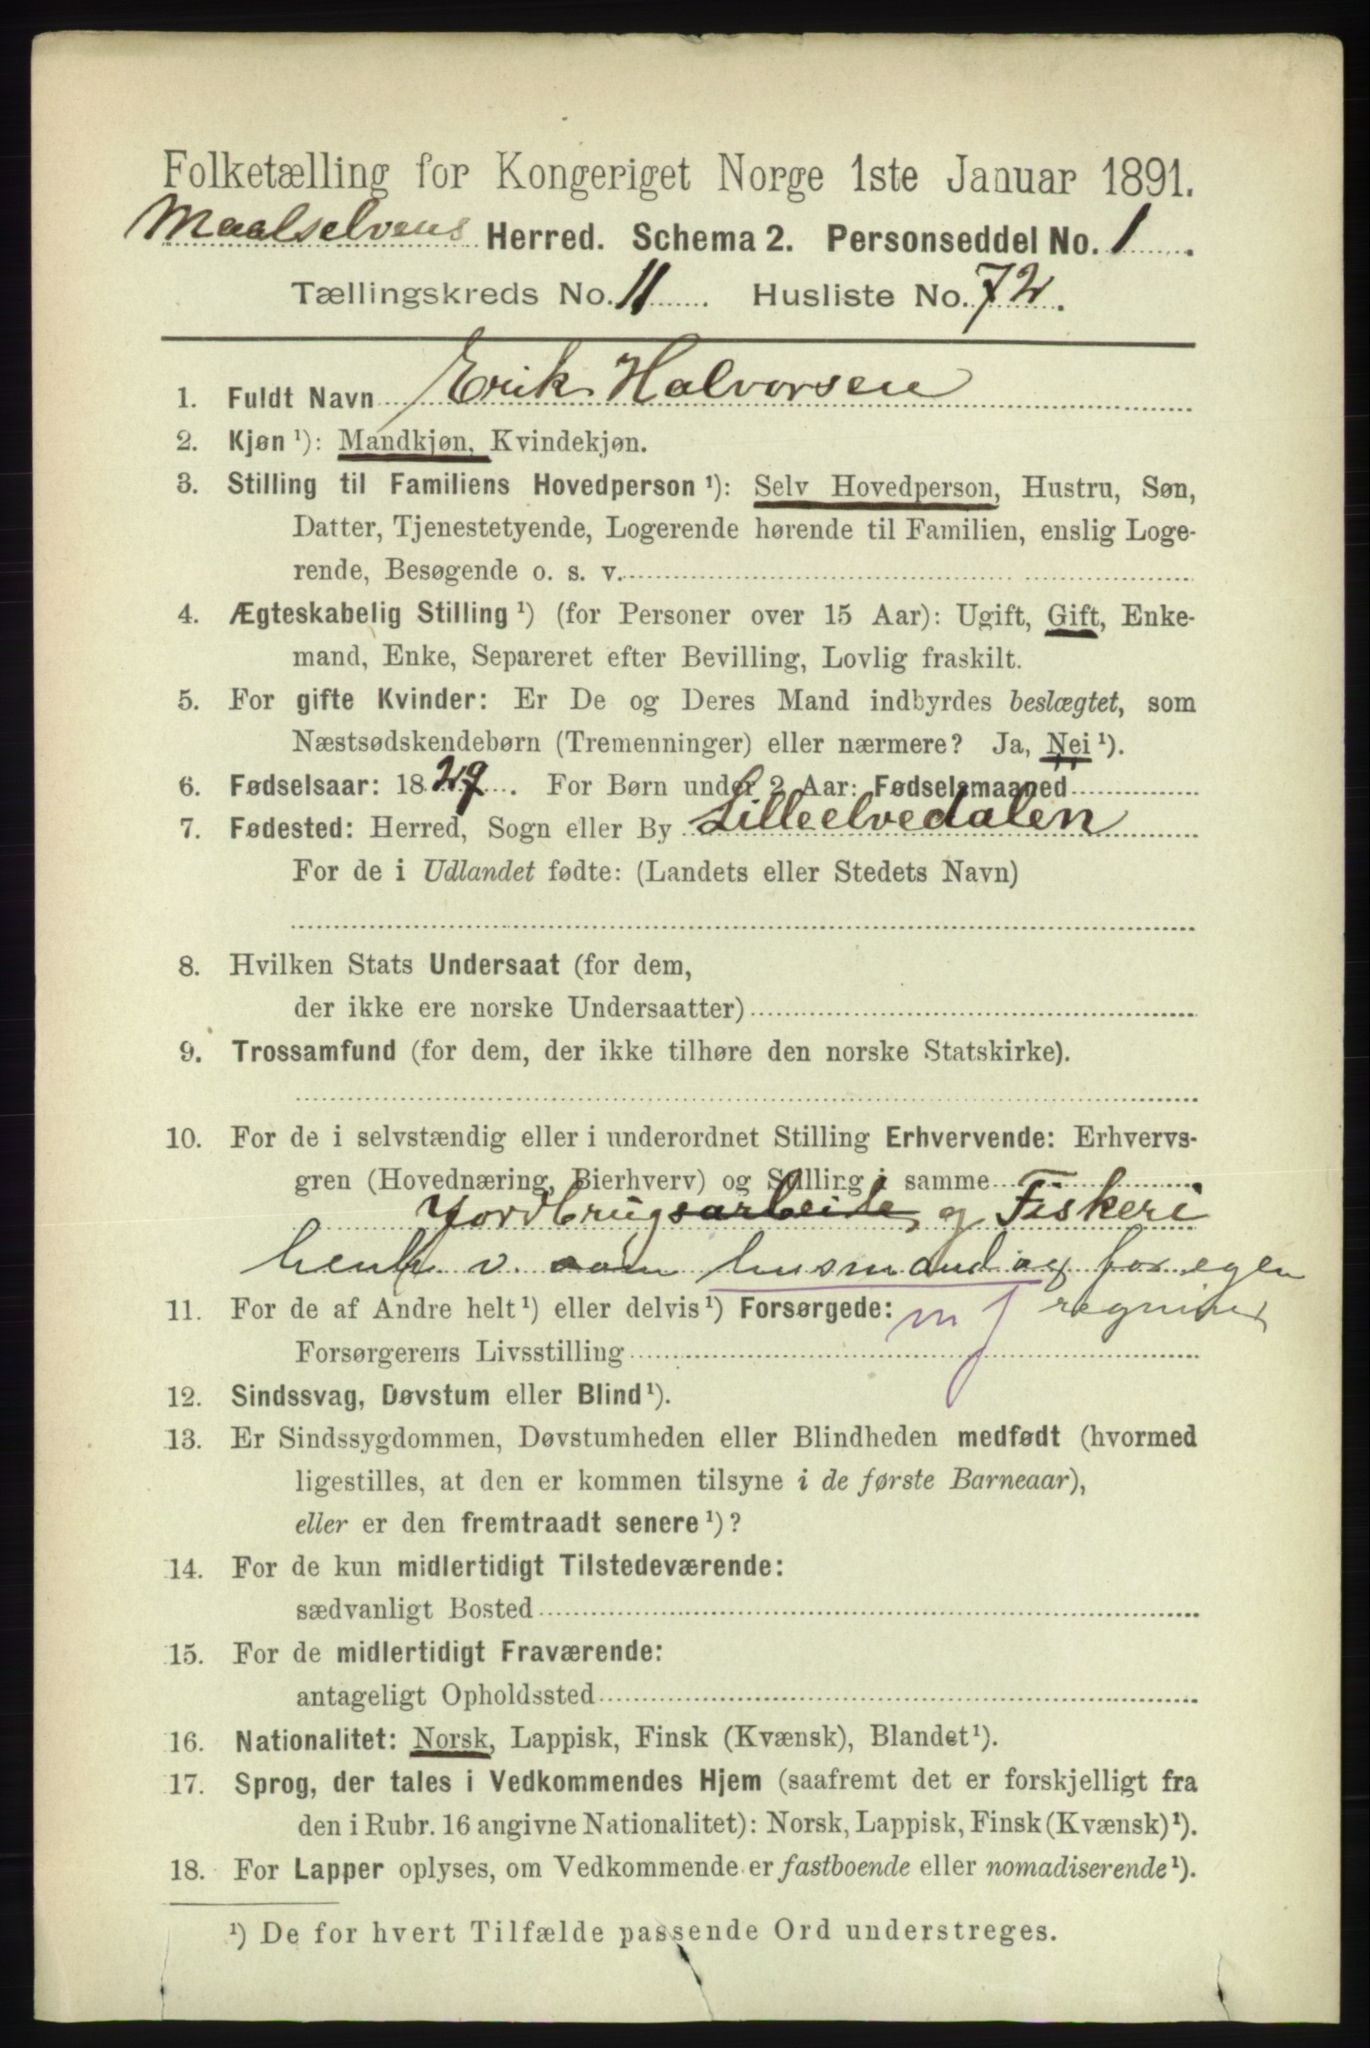 Folketælling for Kongeriget Norge 1ste Januar 1891.
Maalselvens Herred. Schema 2. Personseddel No. 1.
Tællingskreds No. 11 Husliste No. 72.
1. Fuldt Navn Erik Halvorsen
2. Kjøn ¹): Mandkjøn, Kvindekjøn.
3. Stilling til Familiens Hovedperson ¹): Selv Hovedperson, Hustru, Søn,
Datter, Tjenestetyende, Logerende hørende til Familien, enslig Loge-
rende, Besøgende o. s. v.
4. Ægteskabelig Stilling ¹) (for Personer over 15 Aar): Ugift, Gift, Enke-
mand, Enke, Separeret efter Bevilling, Lovlig fraskilt.
5. For gifte Kvinder: Er De og Deres Mand indbyrdes beslægtet, som
Næstsødskendebørn (Tremenninger) eller nærmere? Ja, Nei ¹).
6. Fødselsaar: 1829. For Børn under 2 Aar: Fødselsmaaned
7. Fødested: Herred, Sogn eller By Lilleelvedalen
For de i Udlandet fødte: (Landets eller Stedets Navn)
8. Hvilken Stats Undersaat (for dem,
der ikke ere norske Undersaatter)
9. Trossamfund (for dem, der ikke tilhøre den norske Statskirke).
10. For de i selvstændig eller i underordnet Stilling Erhvervende: Erhvervs-
gren (Hovednæring, Bierhverv) og Stilling i samme
Jordbrugsarbeide og Fiskeri
henh v. som husmand og for egen
11. For de af Andre helt ¹) eller delvis ¹) Forsørgede: m f regning
Forsørgerens Livsstilling
12. Sindssvag, Døvstum eller Blind ¹).
13. Er Sindssygdommen, Døvstumheden eller Blindheden medfødt (hvormed
ligestilles, at den er kommen tilsyne i de første Barneaar),
eller er den fremtraadt senere ¹)?
14. For de kun midlertidigt Tilstedeværende:
sædvanligt Bosted
15. For de midlertidigt Fraværende:
antageligt Opholdssted
16. Nationalitet: Norsk, Lappisk, Finsk (Kvænsk), Blandet ¹).
17. Sprog, der tales i Vedkommendes Hjem (saafremt det er forskjelligt fra
den i Rubr. 16 angivne Nationalitet): Norsk, Lappisk, Finsk (Kvænsk) ¹).
18. For Lapper oplyses, om Vedkommende er fastboende eller nomadiserende ¹).
¹) De for hvert Tilfælde passende Ord understreges.